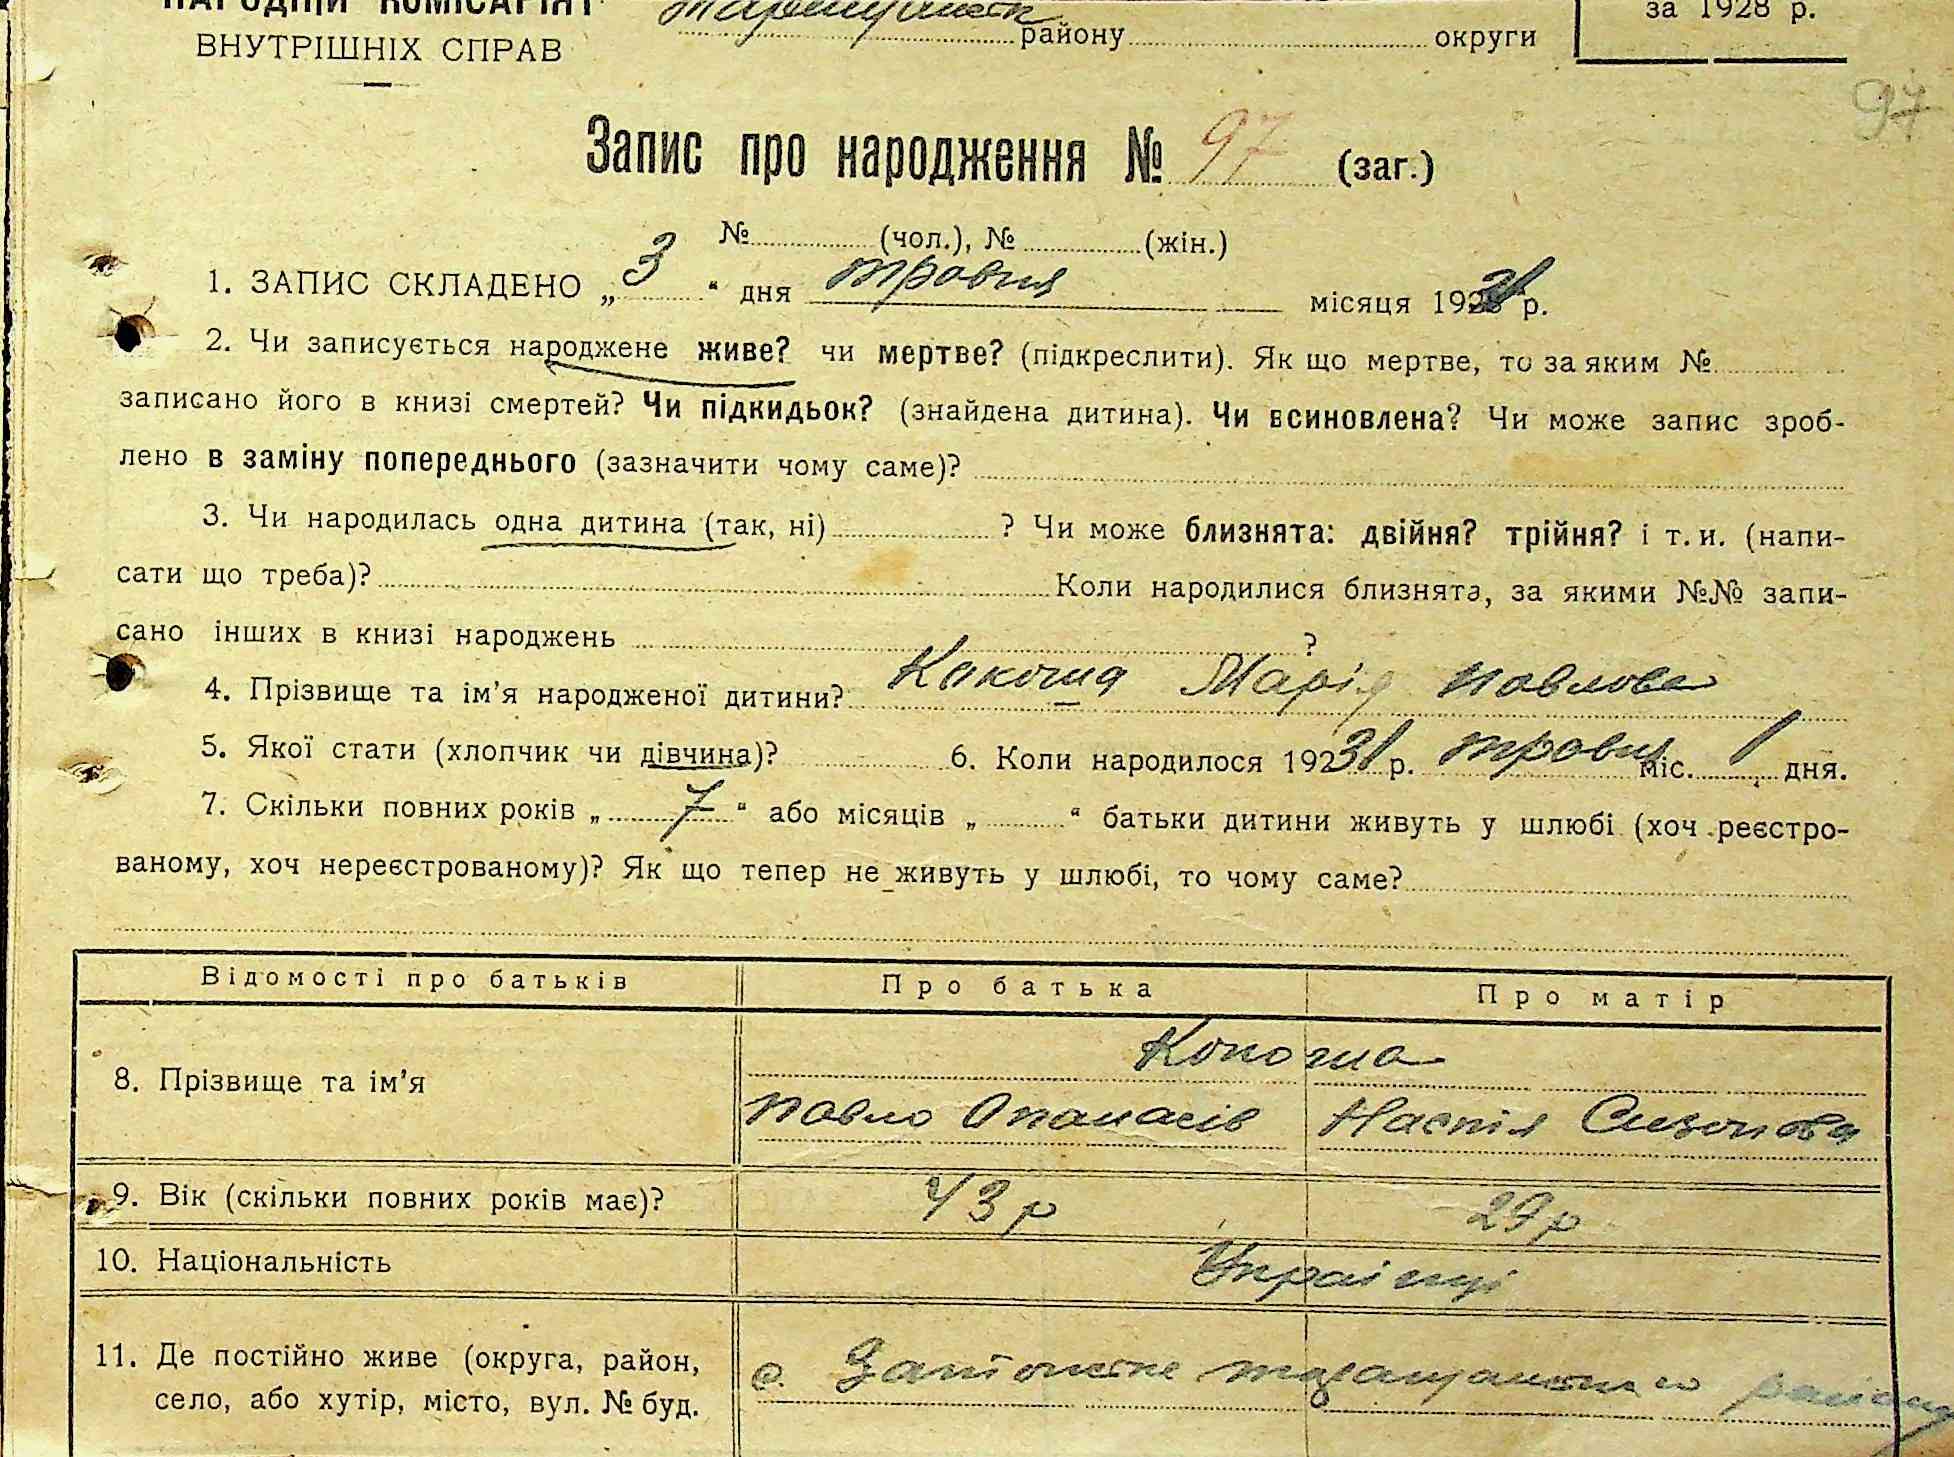 НАРОДНІЙ КОМІСАРІЯТ
за 1928 р.
ВНУТРІШНІХ СПРАВ
району округи
97
Запис про народження № 97 (заг.)
№ (чол.), № (жін.)
1. ЗАПИС СКЛАДЕНО „ 3 “ дня травня місяця 1931 р.
2. Чи записується народжене живе? чи мертве? (підкреслити). Як що мертве, то за яким №
записано його в книзі смертей? Чи підкидьок? (знайдена дитина). Чи всиновлена? Чи може запис зроб-
лено в заміну попереднього (зазначити чому саме)?
3. Чи народилась одна дитина (так, ні) ? Чи може близнята: двійня? трійня? і т. и. (напи-
сати що треба)? Коли народилися близнята, за якими №№ запи-
сано інших в книзі народжень ?
4. Прізвище та ім’я народженої дитини? Марія Павлова
5. Якої стати (хлопчик чи дівчина)? 6. Коли народилося 1931 р. травня міс. 1 дня.
7. Скільки повних років „ 7 “ або місяців „ “ батьки дитини живуть у шлюбі (хоч реєстро-
ваному, хоч нереєстрованому)? Як що тепер не живуть у шлюбі, то чому саме?
Відомості про батьків Про батька Про матір
8. Прізвище та ім’я
Павло Опанасів Настя Сизонова
9. Вік (скільки повних років має)? 43 р 29 р
10. Національність Українці
11. Де постійно живе (округа, район,
село, або хутір, місто, вул. № буд.
с. Таращанського району